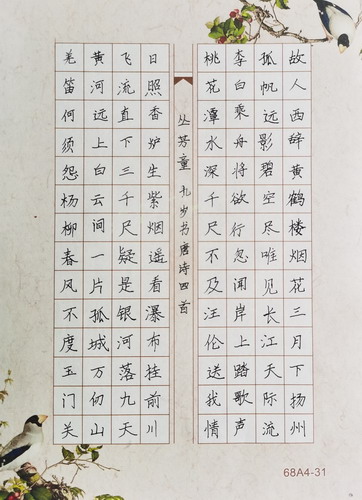 故人西辞黄鹤楼烟花三月下扬州
孤帆远影碧空尽唯见长江天际流
李白乘舟将欲行忽闻岸上踏歌声
桃花潭水深千尺不及汪伦送我情
丛芳童 九岁书唐诗四首
日照香炉生紫烟遥看瀑布挂前川
飞流直下三千尺疑是银河落九天
黄河远上白云间一片孤城万仞山
羌笛何须怨杨柳春风不度玉门关
68A4-31